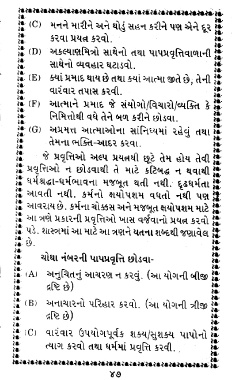 (C) મનને મારીને અને થોડું સહન કરીને પણ એને દૂર
કરવા પ્રયત્ન કરવો.
(D) અકલ્યાણમિત્રો સાથેનો તથા પાપપ્રવૃત્તિવાળાની
સાથેનો વ્યવહાર ઘટાડવો.
(E) ક્યાં પ્રમાદ થાય છે તથા ક્યાં આત્મા જીતે છે, તેની
વારંવાર તપાસ કરવી.
(F) આત્માને પ્રમાદ જે સંયોગો/વિચારો/વ્યક્તિ કે
નિમિત્તોથી વધે તેને બળ કરીને છોડવા.
(G) અપ્રમત્ત આત્માઓના સાંનિધ્યમાં રહેવું તથા
તેમના ભક્તિ-આદર કરવા.
જે પ્રવૃત્તિઓ અલ્પ પ્રયત્નથી છૂટે તેમ હોય તેવી
પ્રવૃત્તિઓ ન છોડવાથી તે માટે કટિબદ્ધ ન થવાથી
ધર્મશ્રદ્ધા-ધર્મભાવના મજબૂત થતી નથી. દૃઢધર્મતા
આવતી નથી. કર્મનો ક્ષયોપશમ વધતો નથી પણ
આવરાય છે. કર્મના ચોક્કસ અને મજબૂત ક્ષયોપશમ માટે
આ ત્રણે પ્રકારની પ્રવૃત્તિઓ ખાસ વર્જવાનો પ્રયત્ન કરવો
પડે. શાસ્ત્રમાં આ માટે આ ત્રણને યતના શબ્દથી જણાવેલ
છે.
ચોથા નંબરની પાપપ્રવૃત્તિ છોડવા-
(A) અનુચિતનું આચરણ ન કરવું. (આ યોગની બીજી
દ્રષ્ટિ છે)
(B) અનાચારનો પરિહાર કરવો. (આ યોગની ત્રીજી
દ્રષ્ટિ છે)
(C) વારંવાર ઉપયોગપૂર્વક શક્ય/સુશક્ય પાપોનો
ત્યાગ કરવો તથા ધર્મમાં પ્રવૃત્તિ કરવી.
૪૭